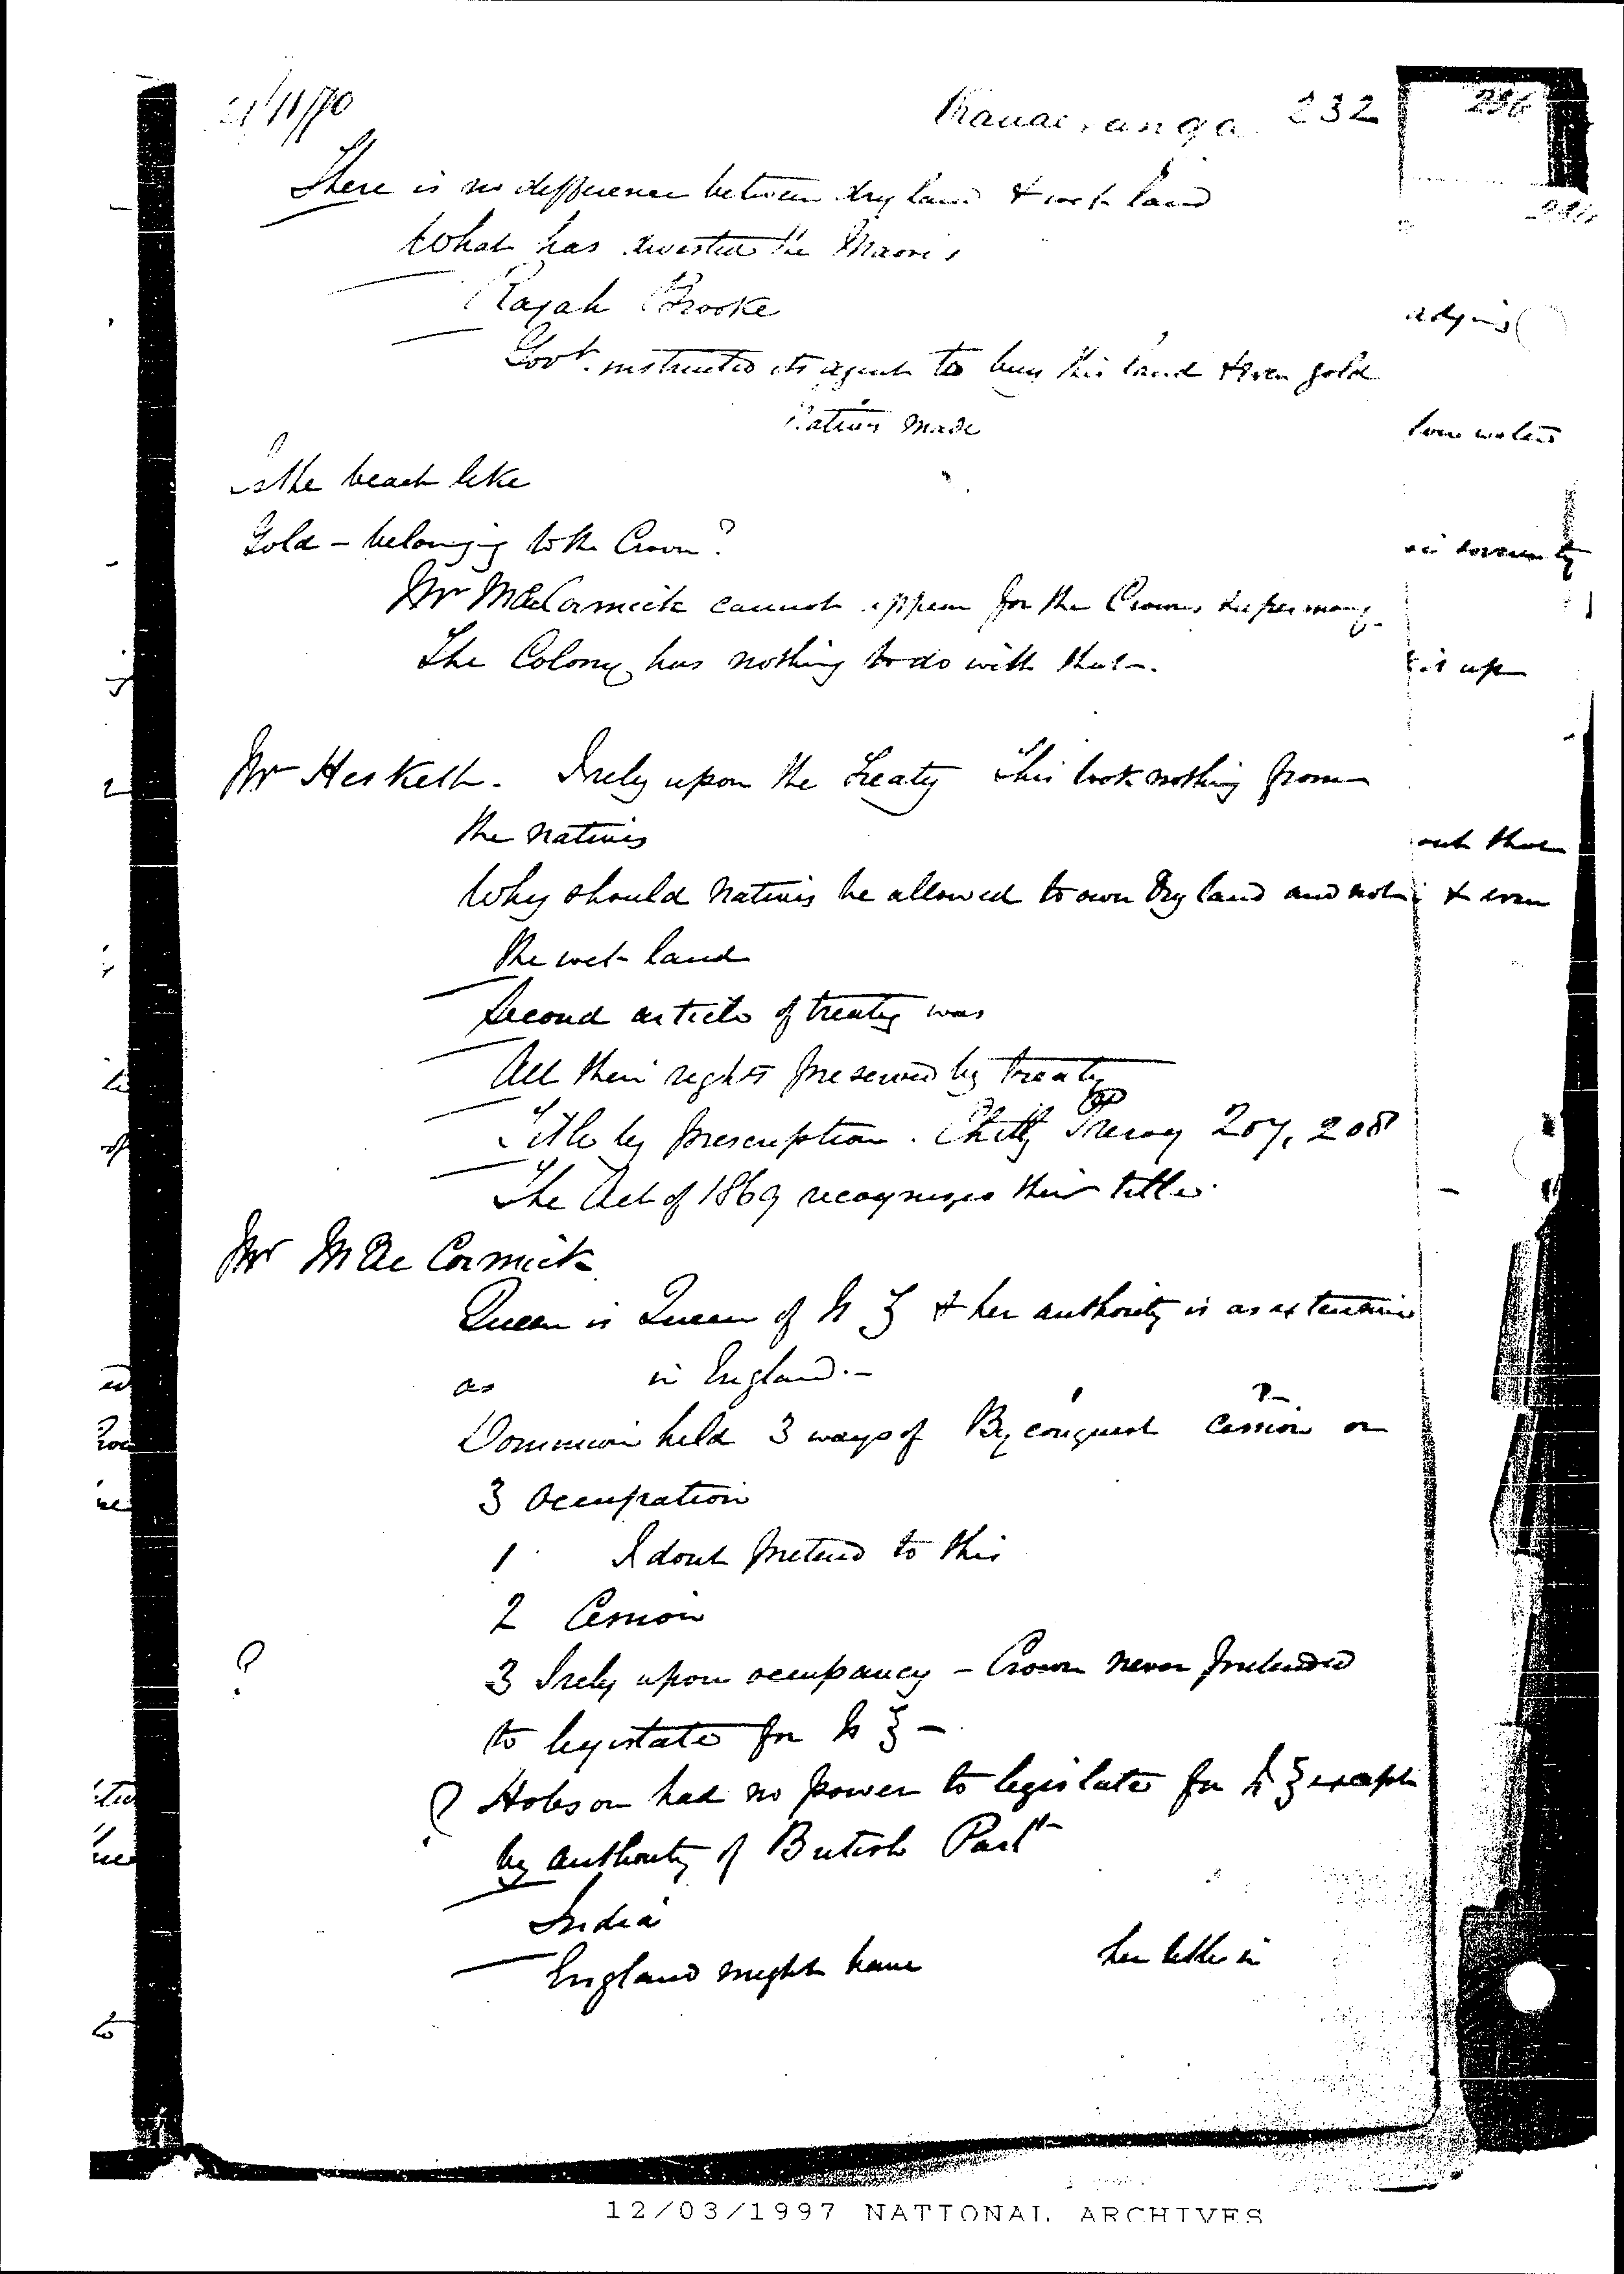 21/11/70
Kauaeranga 232
236
There is no difference between dry land & wet land
What has divested the Maoris
Rajah Brooke
Govt. instructed its agent to buy this land & even gold
Natives made
Is the beach like
Gold - belonging to the Crown?
Mr MacCormick cannot appear for the Crowns
The Colony has nothing to do with that.
Mr Hesketh. I rely upon the Treaty This took nothing from
the natives
Why should natives be allowed to own dry land and not
the wet land
Second article of treaty was
All their rights preserved by treaty
Title by prescription. Chitty Prerog 207, 208
The Act of 1869 recognizes their title.
Mr MacCormick
Queen is Queen of N Z & her authority is as extensive
as in England. -
Dominion held 3 ways of By conquest Cession or
1 2
3 Occupation
1 I dont pretend to this
2 Cession
? 3 I rely upon occupancy - Crown never pretended
to legislate for N Z -
? Hobson had no power to legislate for N Z except
by authority of British Parlt
India
England might have her title in
low waters
it up
& even
to
12/03/1997 NATIONAL ARCHIVES